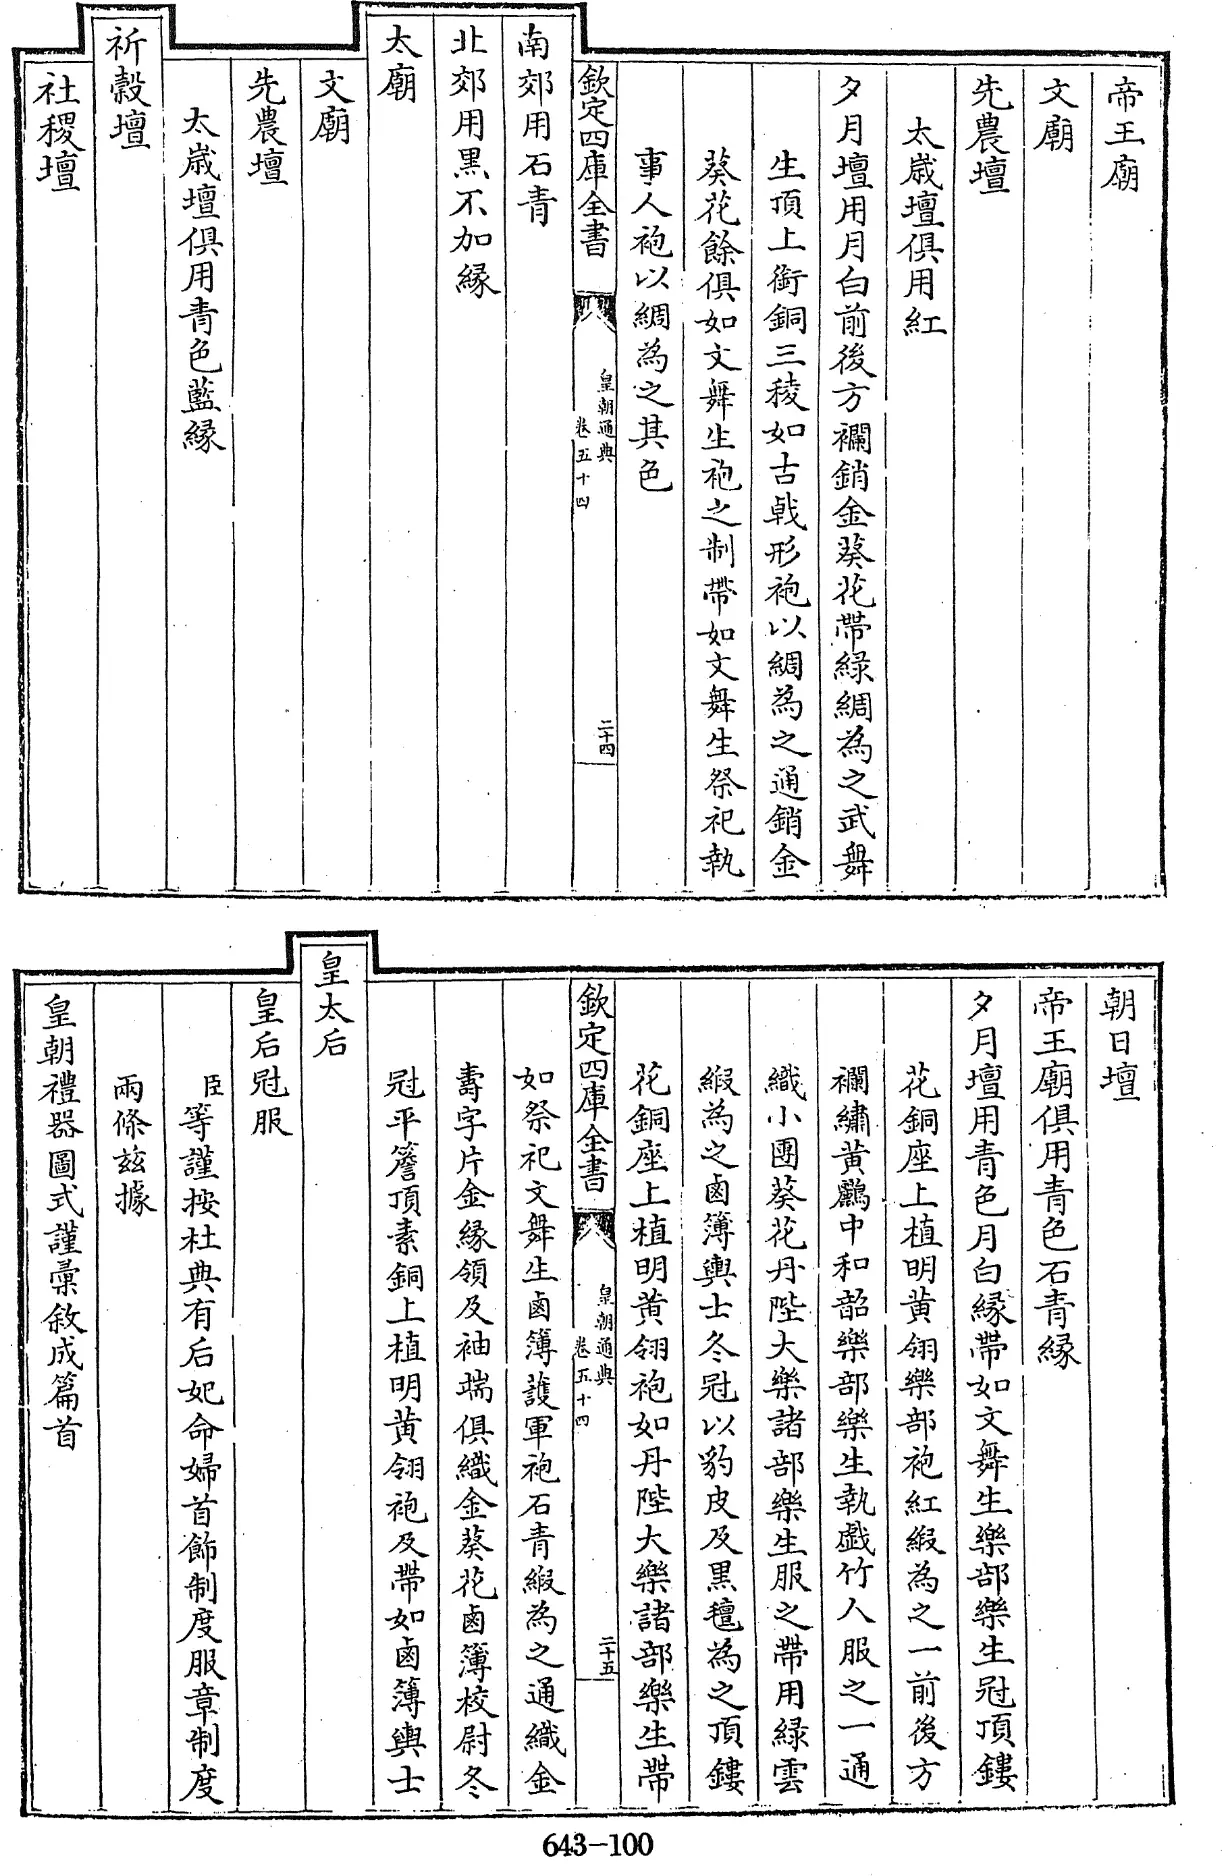 帝王廟
文廟
先農壇
太歲壇俱用紅
夕月壇用月白前後方襴銷金葵花帶緑綢為之武舞
生頂上銜銅三稜如古戟形袍以綢為之通銷金
葵花餘俱如文舞生袍之制帶如文舞生祭祀執
事人袍以綢為之其色
欽定四庫全書
皇朝通典
卷五十四
二十四
南郊用石青
北郊用黑不加縁
太廟
文廟
先農壇
太歲壇俱用青色藍縁
祈穀壇
社稷壇
朝日壇
帝王廟俱用青色石青縁
夕月壇用青色月白縁帶如文舞生樂部樂生冠頂鏤
花銅座上植明黄翎樂部袍紅緞為之一前後方
襴繡黄鸝中和韶樂部樂生執戲竹人服之一通
織小團葵花丹陛大樂諸部樂生服之帶用緑雲
緞為之鹵簿輿士冬冠以豹皮及黒氊為之頂鏤
花銅座上植明黄翎袍如丹陛大樂諸部樂生帶
欽定四庫全書
皇朝通典
卷五十四
二十五
如祭祀文舞生鹵簿護軍袍石青緞為之通織金
壽字片金縁領及袖端俱織金葵花鹵簿校尉冬
冠平簷頂素銅上植明黄翎袍及帶如鹵簿輿士
皇太后
皇后冠服
臣等謹按杜典有后妃命婦首飾制度服章制度
兩條兹據
皇朝禮器圖式謹彙敘成篇首
643-100